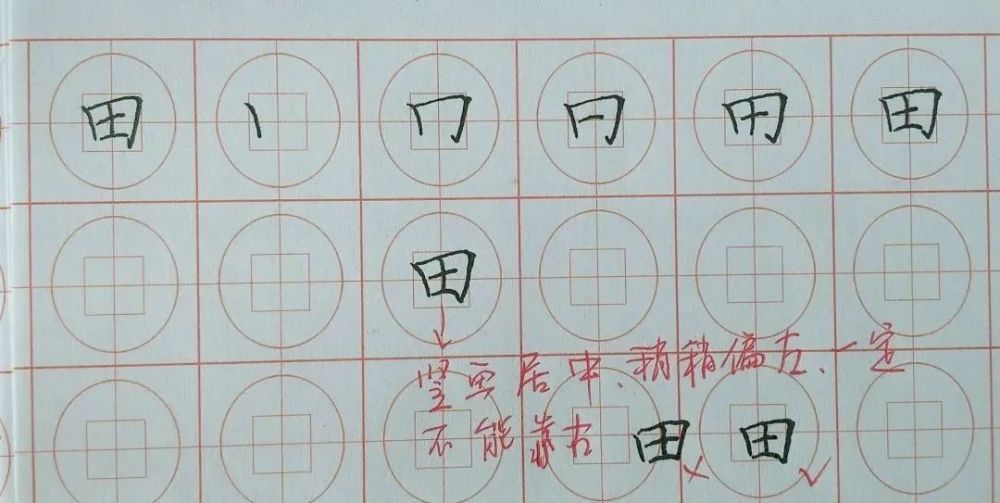 田 丨 冂 日 用 田
田
竖画居中、稍稍偏左、一定
不能靠右 田 × 田 ✓